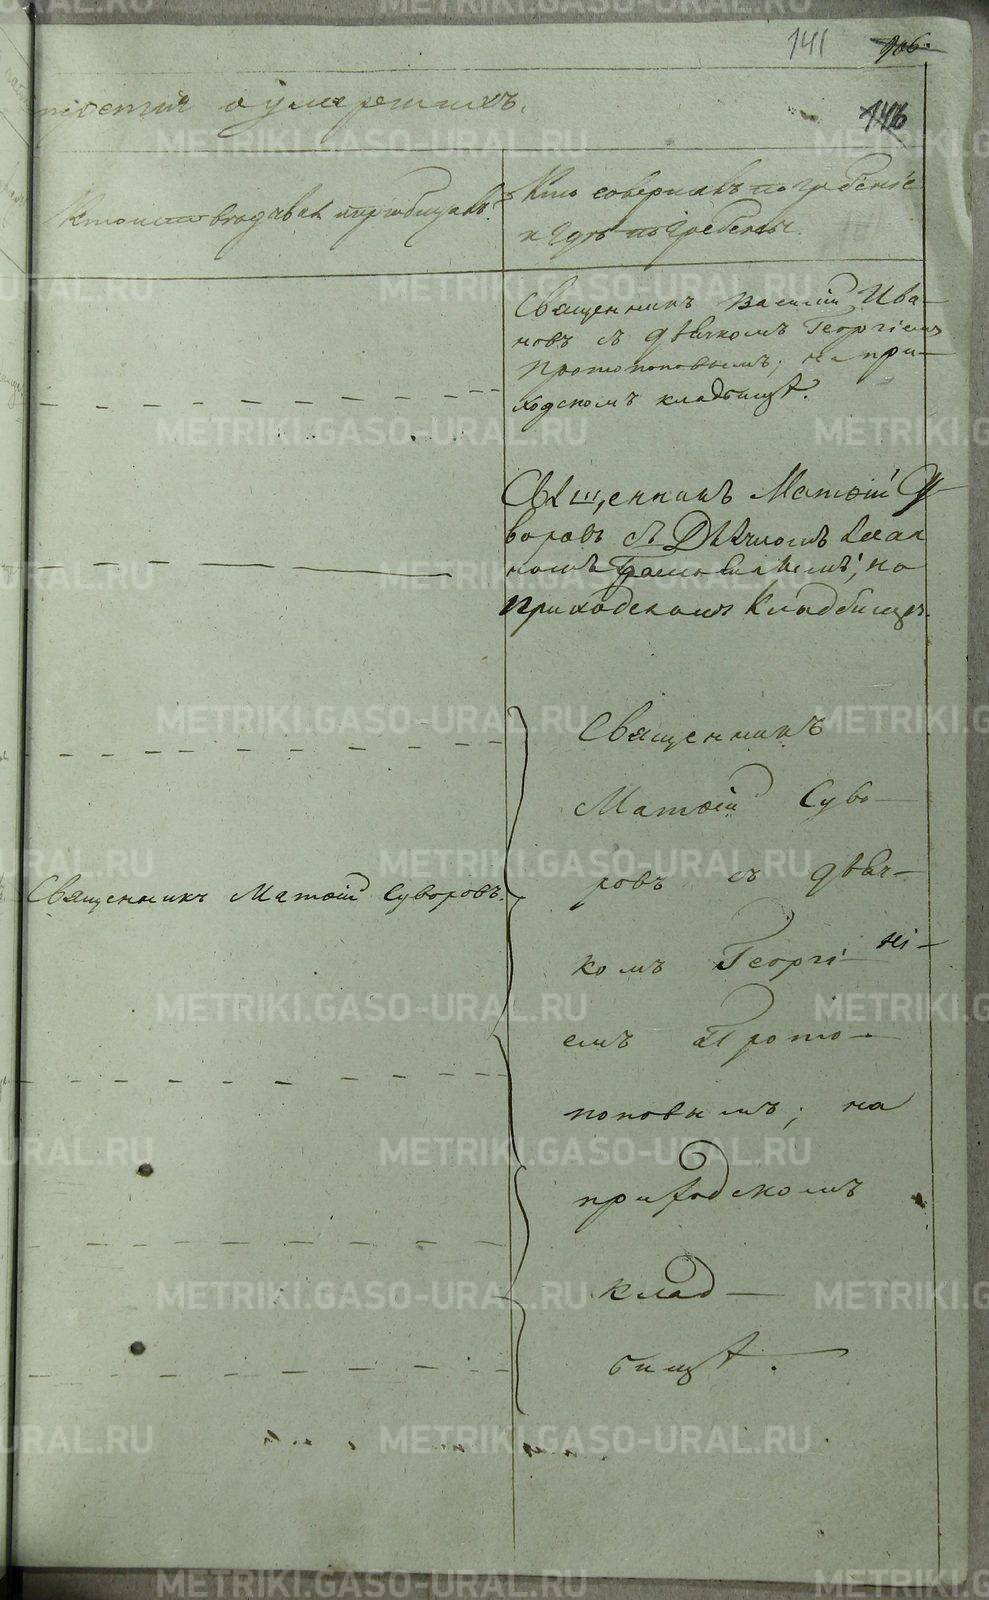 141 106.
о умерших.
146
Кто исповѣдывалъ и приобщалъ.
Кто совершалъ погребенiе
и гдѣ погребены.
Священникъ Василiй Ива-
новъ съ дьячкомъ Георгiемъ
Протопоповымъ; на при-
ходскомъ кладбищѣ.
Священникъ Матѳiй Су
воровъ съ Дьячкомъ
на
приходскомъ Кладбищѣ.
Священникъ
Матѳiй Суво-
ровъ съ дьяч-
Священникъ Матѳiй Суворовъ.
комъ Георгi-
емъ Прото-
поповымъ; на
приходскомъ
клад-
бищѣ.
METRIKI.GASO-URAL.RU